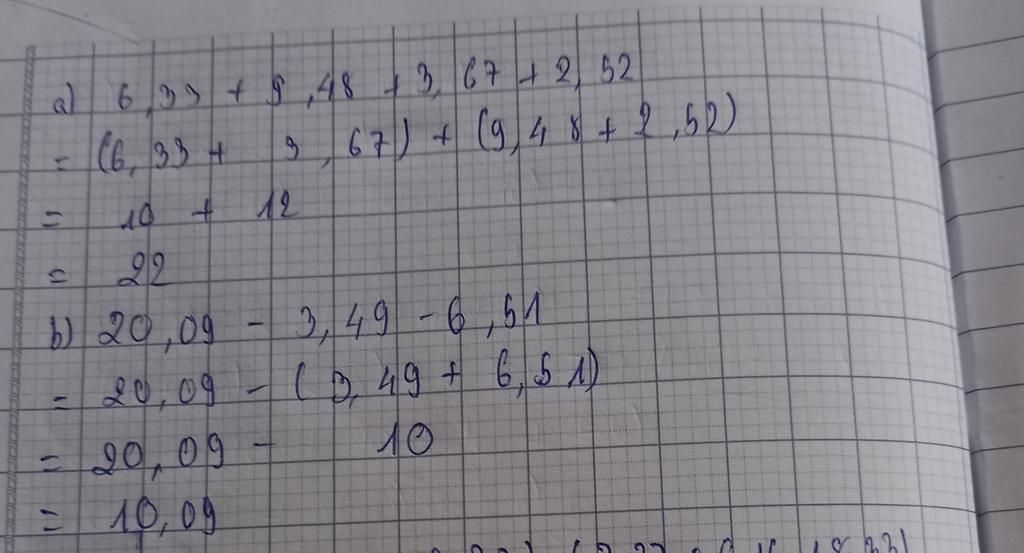 a) 6,33 + 9,48 + 3,67 + 2,52
= (6,33 + 3,67) + (9,48 + 2,52)
= 10 + 12
= 22
b) 20,09 - 3,49 - 6,51
= 20,09 - (3,49 + 6,51)
= 20,09 - 10
= 10,09